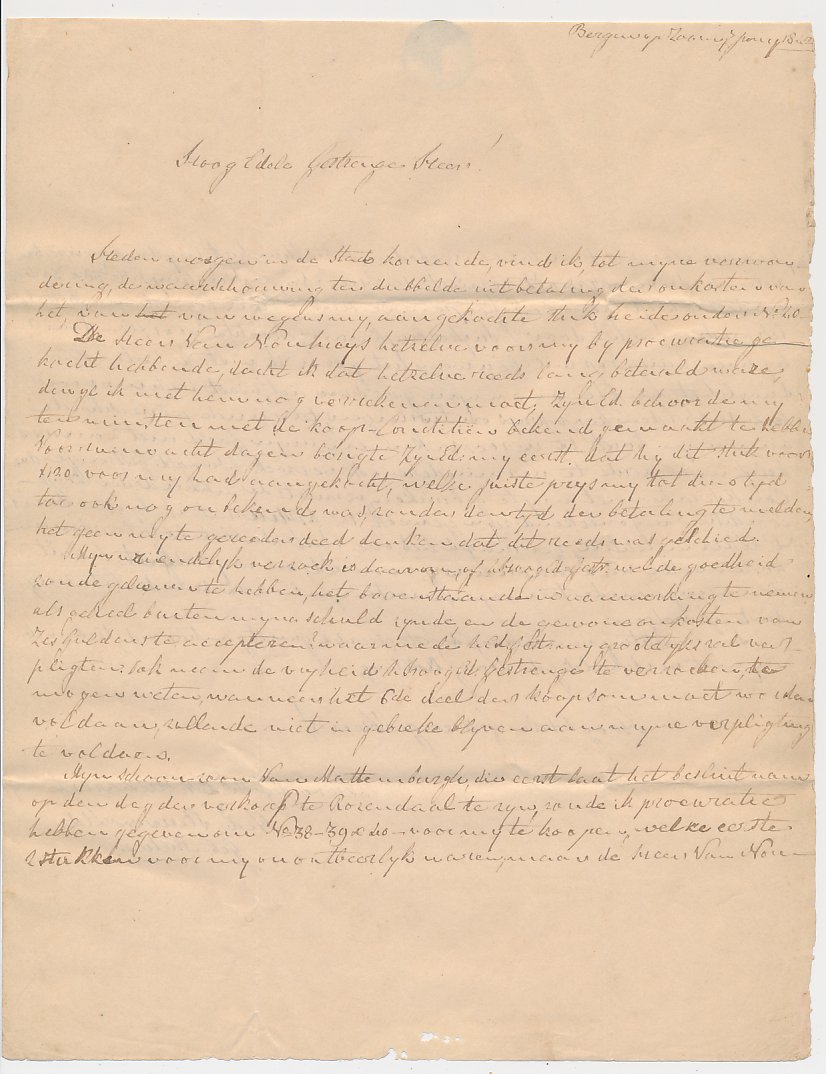 Bergen op Zoom
Hoog Edele Gestrenge Heer!
Heden morgen in de Stad komende, vind ik, tot myne verwon
dering, de waarschouwing ten dubbelde uitbetaling der onkosten van
het, van het van wegens my, aangekochte stuk heide onder N. 40
De Heer Van Nouhuijs hetzelve voor my by procuratie ge
kocht hebbende, dacht ik dat hetzelve reeds lang betaald ware,
dewyl ik met hem nog verrekenen moet, ZynEd. behoorde my
ten minsten met de koop-Conditiën bekend gemaakt te hebben
Voor ruim acht dagen berigte ZynEd: my eerst. dat hy dit stuk voor
ƒ120. voor my had aangekocht, welke juiste prys my tot dien tyd
toe ook nog onbekend was, zonder den tyd der betaling te melden,
het geen my te gereeder deed denken dat dit reeds was geschied.
Myn vriendelyk verzoek is daarom, of UHoogEd: Gestr: wel de goedheid
zoude gelieven te hebben, het bovenstaande in aanmerking te nemen
als geheel buiten myn schuld zynde, en de gewone onkosten van
Zes guldens te accepteren? waarmede UEdGestr my grootelyks zal ver-
pligten. Ook neem de vryheid UHoogEd. Gestrenge te verzoeken, te
mogen weten, wanneer het 6de deel der koopsom moet worden
voldaan, zullende niet in gebreke blyven aan myne verpligting
te voldoen.
Myn schoonzoon Van Mattemburgh, die eerst laat het besluit nam
op den dag der verkoop te Rozendaal te zyn, zoude ik procuratie
hebben gegeven om N. 38-39 & 40 - voor my te koopen, welke eerste
2 stukken voor my onontbeerlyk waren, maar de Heer Van Nou-